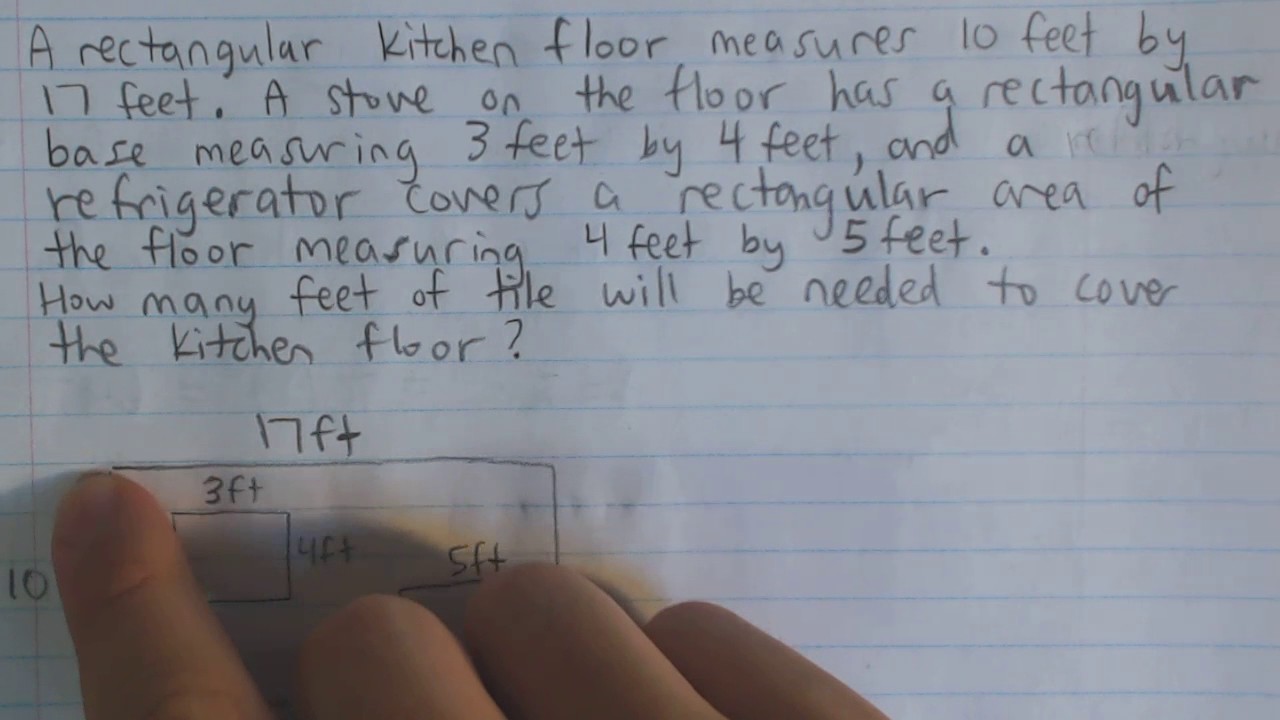 A rectangular kitchen floor measures 10 feet by
17 feet. A stove on the floor has a rectangular
base measuring 3 feet by 4 feet, and a
refrigerator covers a rectangular area of
the floor measuring 4 feet by 5 feet.
How many feet of tile will be needed to cover
the kitchen floor?
17ft
3ft
4ft
5ft
10